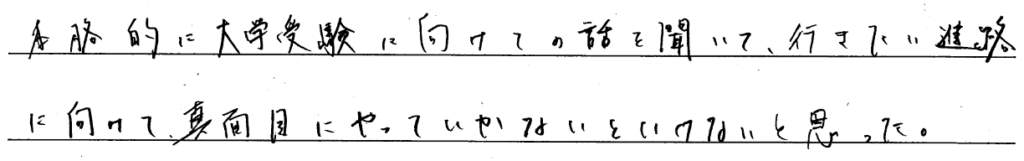 本格的に大学受験に向けての話を聞いて、行きたい進路
に向けて、真面目にやっていかないといけないと思った。